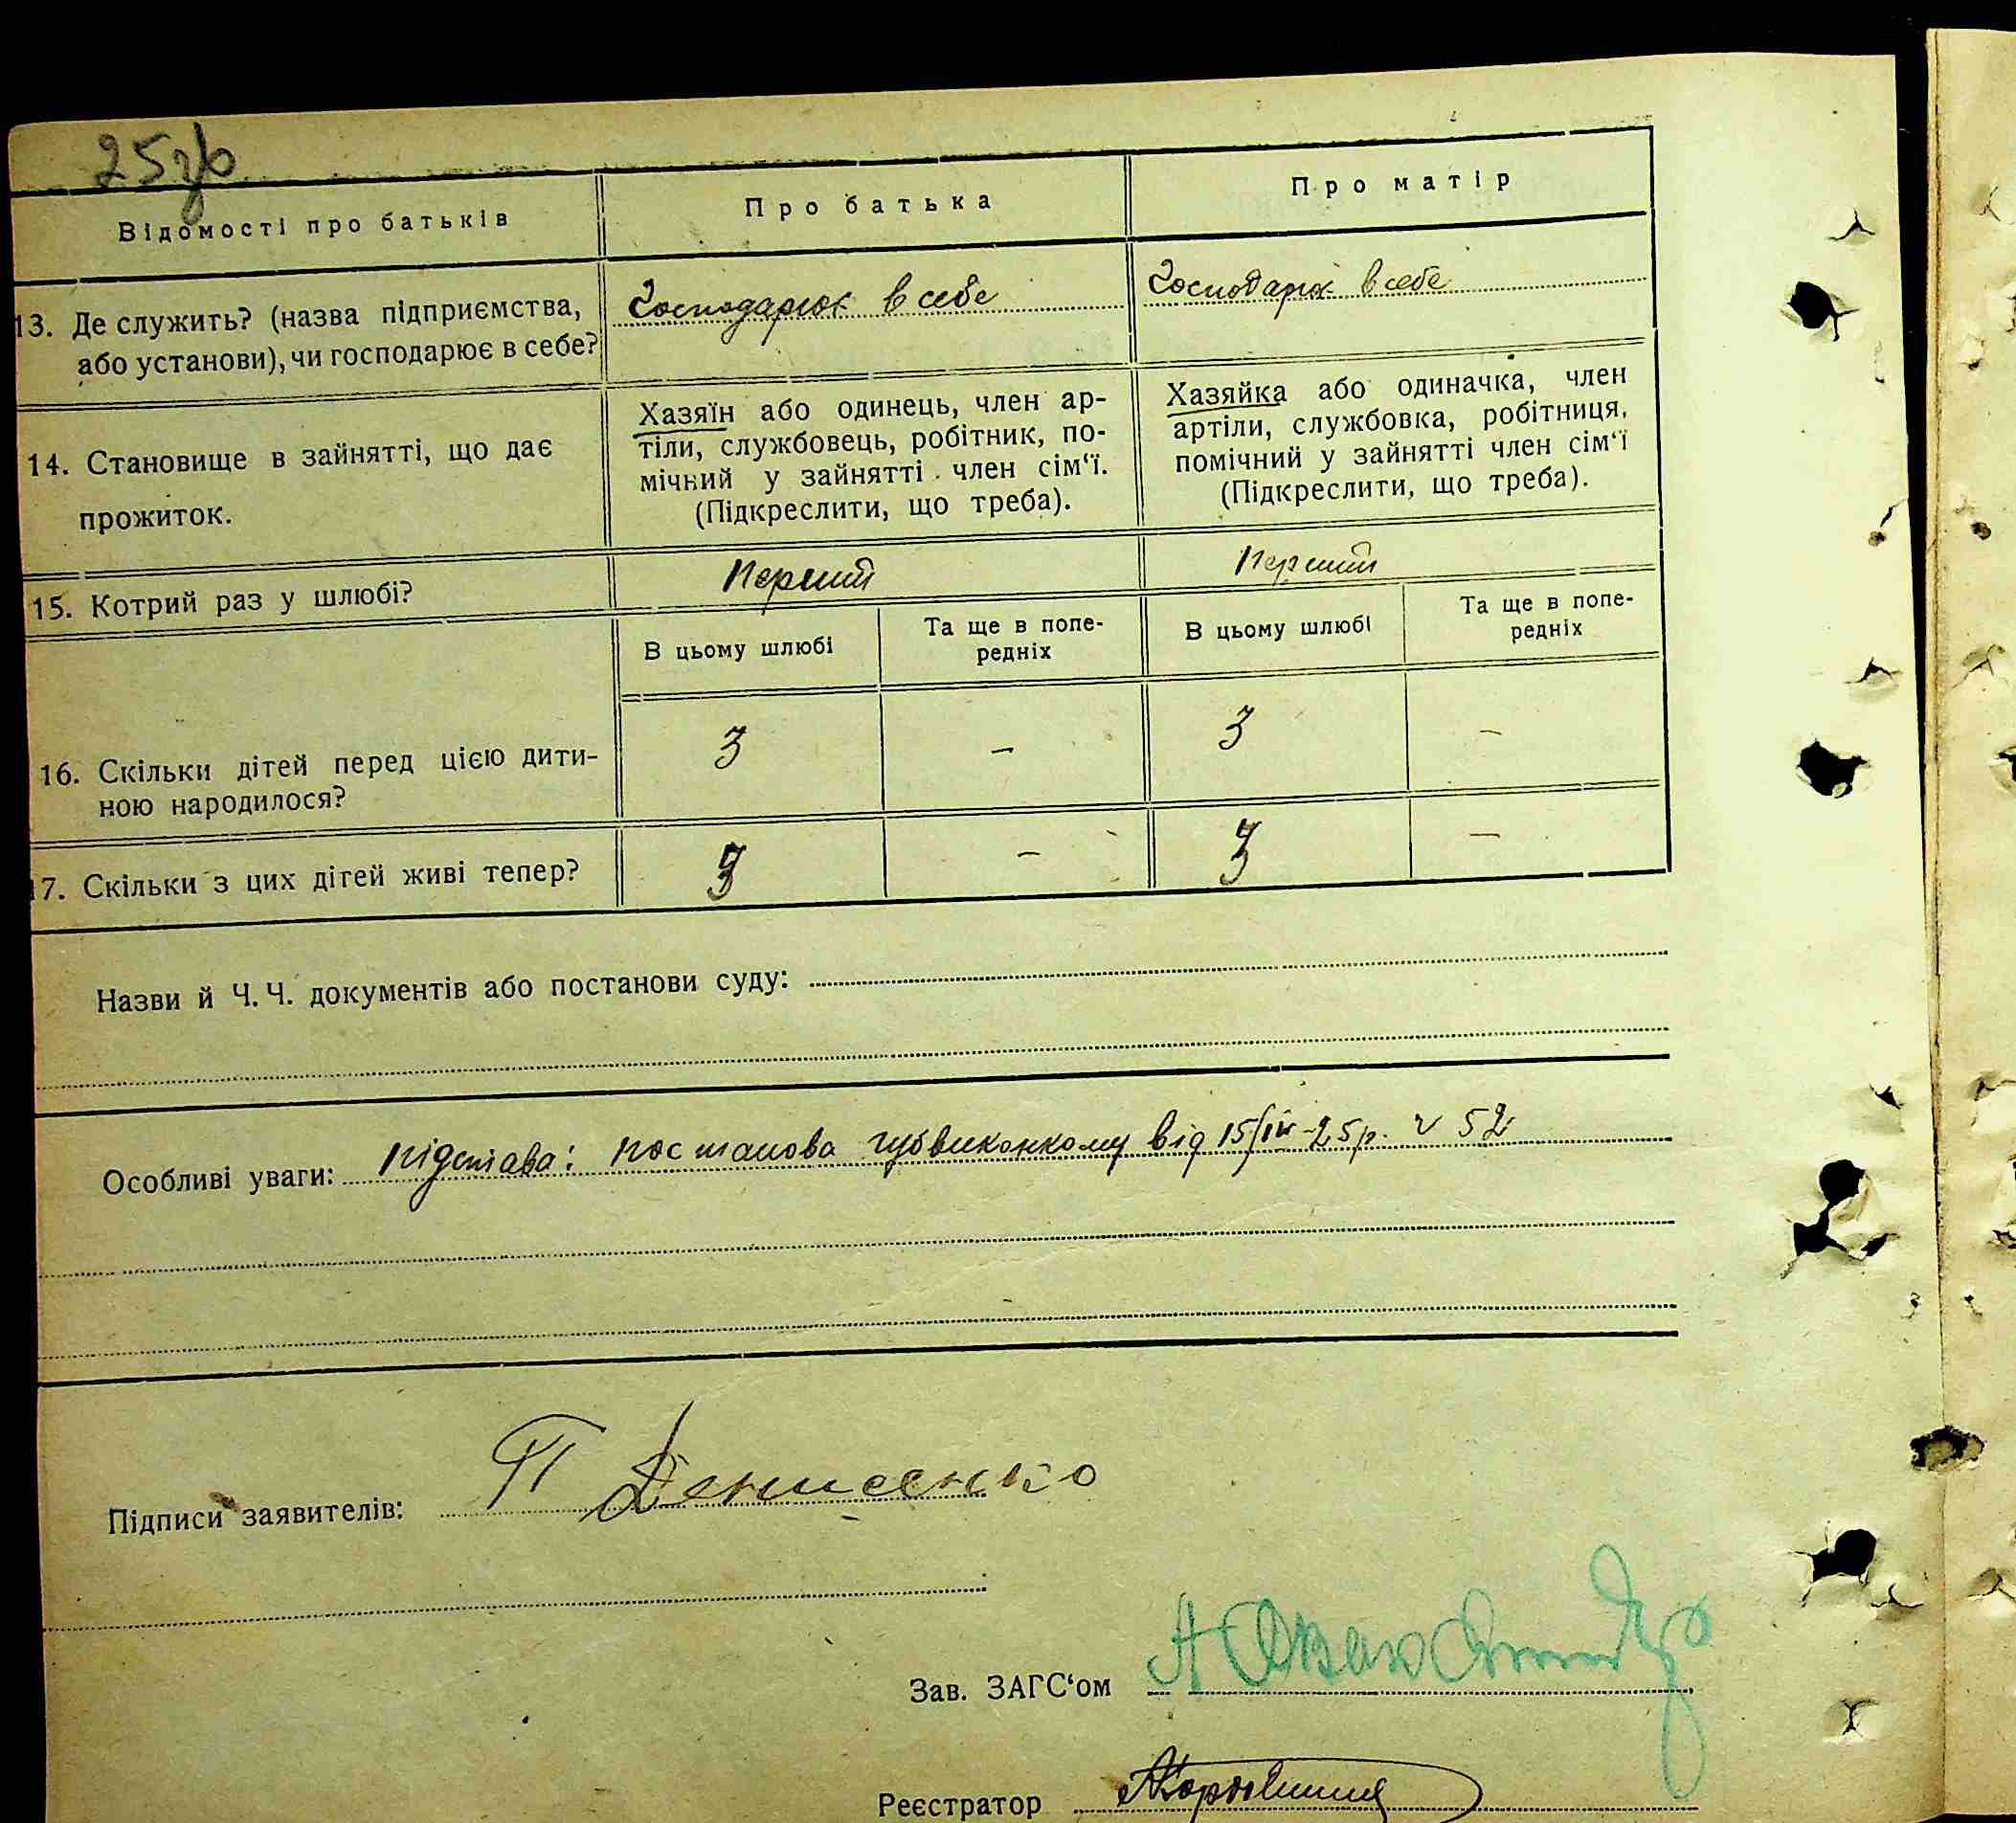 25зв
Відомості про батьків
Про батька
Про матір
13. Де служить? (назва підприємства,
або установи), чи господарює в себе?
Господарює в себе
Господарює в себе
14. Становище в зайнятті, що дає
прожиток.
Хазяїн або одинець, член ар-
тіли, службовець, робітник, по-
мічний у зайнятті член сім‘ї.
(Підкреслити, що треба).
Хазяйка або одиначка, член
артіли, службовка, робітниця,
помічний у зайнятті член сім‘ї
(Підкреслити, що треба).
15. Котрий раз у шлюбі?
Перший
Перший
В цьому шлюбі
Та ще в попе-
редніх
В цьому шлюбі
Та ще в попе-
редніх
16. Скільки дітей перед цією дити-
ною народилося?
3 – 3 –
17. Скільки з цих дітей живі тепер?
3 – 3 –
Назви й Ч. Ч. документів або постанови суду:
Особливі уваги: Підстава: постанова губвиконкому від 15/IV-25р. № 52
Підписи заявителів: П Денисенко
Зав. ЗАГС‘ом
Реєстратор